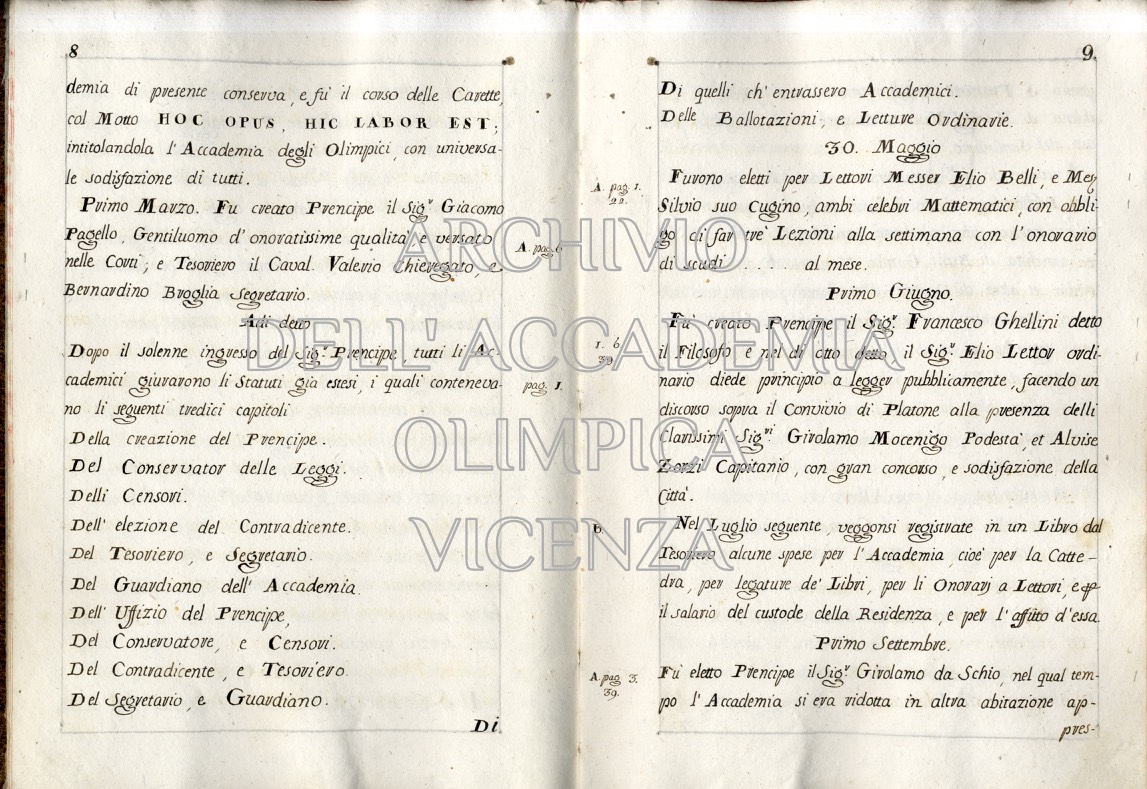 8
demia di presente conserva, e fù il corso delle Carette,
col Motto HOC OPUS, HIC LABOR EST;
intitolandola l'Accademia degli Olimpici, con universa-
le sodisfazione di tutti.
Primo Marzo. Fu creato Prencipe il Sig.r Giacomo
Pagello, Gentiluomo d'onoratissime qualita', e versato
A. pag. 6.
nelle Corti, e Tesoriero il Caval. Valerio Chieregato, e
Bernardino Broglia Segretario.
Adi detto
Dopo il solenne ingresso del Sig.r Prencipe, tutti li Ac-
cademici giurarono li Statuti già estesi, i quali conteneva-
pag. 1.
no li seguenti tredici capitoli
Della creazione del Prencipe.
Del Conservator delle Leggi.
Delli Censori.
Dell' elezione del Contradicente.
Del Tesoriero, e Segretario.
Del Guardiano dell'Accademia.
Dell' Uffizio del Prencipe,
Del Conservatore, e Censori.
Del Contradicente, e Tesoriero.
Del Segretario, e Guardiano.
Di
9.
Di quelli ch'entrassero Accademici.
Delle Ballotazioni, Letture Ordinarie.
30. Maggio
A. pag. 1.
22.
Furono eletti per Lettori Messer Elio Belli, e Mes
Silvio suo Cugino, ambi celebri Mattematici, con obbli-
go di far trè Lezioni alla settimana con l'onorario
di scudi . . . al mese.
Primo Giugno.
Fù creato Prencipe il Sig.r Francesco Ghellini detto
1. 6.
39.
il Filosofo e nel dì otto detto il Sig.r Elio Lettor ordi-
nario diede principio a legger pubblicamente, facendo un
discorso sopra il Convivio di Platone alla presenza delli
Clarissimi Sig.ri Girolamo Mocenigo Podestà, et Alvise
Zorzi Capitanio, con gran concorso, e sodisfazione della
Città.
B.
Nel Luglio seguente, veggonsi registrate in un Libro dal
Tesoriero alcune spese per l'Accademia, cioè per la Catte-
dra, per legature de' Libri, per li Onorarj a Lettori, e p
il salario del custode della Residenza, e per l'affitto d'essa.
Primo Settembre.
A. pag. 3.
39.
Fù eletto Prencipe il Sig.r Girolamo da Schio, nel qual tem-
po l'Accademia si era ridotta in altra abitazione ap-
pres-
ARCHIVIO
DELL'ACCADEMIA
OLIMPICA
VICENZA